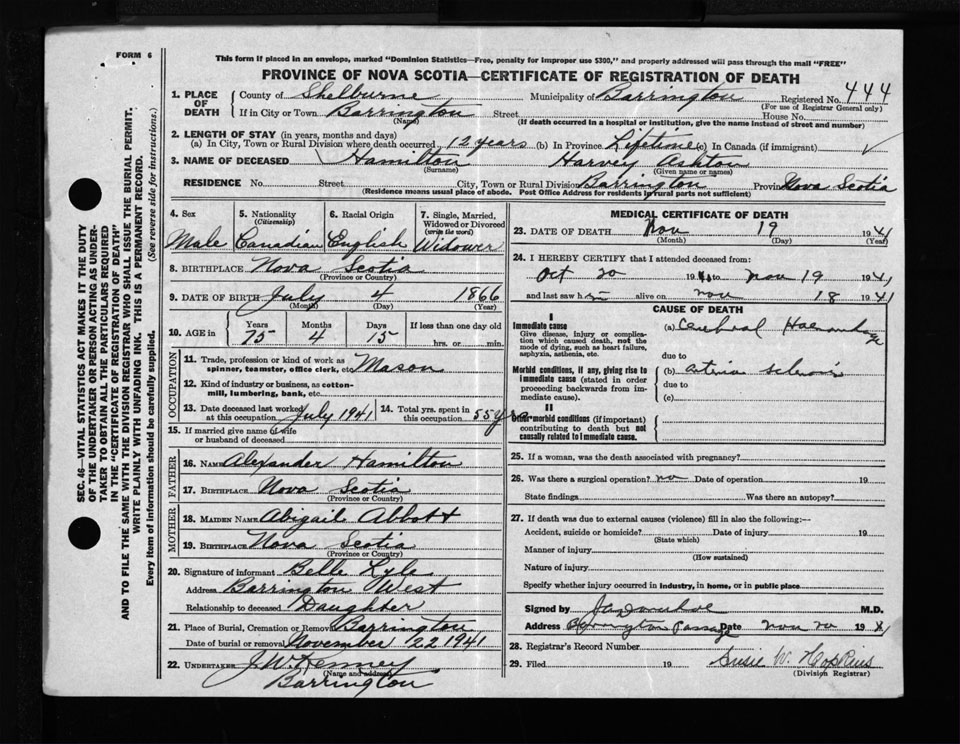 FORM 6
This form if placed in an envelope, marked "Dominion Statistics—Free, penalty for improper use $300," and properly addressed will pass through the mail "FREE"
PROVINCE OF NOVA SCOTIA—CERTIFICATE OF REGISTRATION OF DEATH
1. PLACE OF DEATH County of Shelburne Municipality of Barrington Registered No. 444
(For use of Registrar General only)
If in City or Town Barrington Street House No.
(Name) (If death occurred in a hospital or institution, give the name instead of street and number)
2. LENGTH OF STAY (in years, months and days)
(a) In City, Town or Rural Division where death occurred 12 years (b) In Province Lifetime (c) In Canada (if immigrant)
3. NAME OF DECEASED Hamilton Harvey Ashton
(Surname) (Given name or names)
RESIDENCE No. Street City, Town or Rural Division Barrington Province Nova Scotia
(Residence means usual place of abode. Post Office Address for residents in rural parts not sufficient)
4. Sex 5. Nationality 6. Racial Origin 7. Single, Married, Widowed or Divorced
(Citizenship) (write the word)
Male Canadian English Widower
8. BIRTHPLACE Nova Scotia
(Province or Country)
9. DATE OF BIRTH July 4 1866
(Month) (Day) (Year)
10. AGE in Years Months Days If less than one day old
75 4 15 hrs. or min.
OCCUPATION
11. Trade, profession or kind of work as spinner, teamster, office clerk, etc. Mason
12. Kind of industry or business, as cotton-mill, lumbering, bank, etc.
13. Date deceased last worked at this occupation July 1941 14. Total yrs. spent in this occupation 55 yrs
15. If married give name of wife or husband of deceased
FATHER
16. NAME Alexander Hamilton
17. BIRTHPLACE Nova Scotia
(Province or Country)
MOTHER
18. MAIDEN NAME Abigail Abbott
19. BIRTHPLACE Nova Scotia
(Province or Country)
20. Signature of informant Belle Lyle
Address Barrington West
Relationship to deceased Daughter
21. Place of Burial, Cremation or Removal Barrington
Date of burial or removal November 22 1941
22. UNDERTAKER J. W. Kenney
(Name and address)
Barrington
MEDICAL CERTIFICATE OF DEATH
23. DATE OF DEATH Nov 19 1941
(Month) (Day) (Year)
24. I HEREBY CERTIFY that I attended deceased from:
Oct 20 19 to Nov 19 1941
and last saw h im alive on Nov 18 1941
CAUSE OF DEATH
I
Immediate cause (a) Cerebral Haemorrhage
Give disease, injury or complication which caused death, not the mode of dying, such as heart failure, asphyxia, asthenia, etc.
due to
Morbid conditions, if any, giving rise to immediate cause (stated in order proceeding backwards from immediate cause).
(b)
due to
(c)
II
Other morbid conditions (if important) contributing to death but not causally related to immediate cause.
25. If a woman, was the death associated with pregnancy?
26. Was there a surgical operation? no Date of operation 19
State findings Was there an autopsy?
27. If death was due to external causes (violence) fill in also the following:—
Accident, suicide or homicide? Date of injury 19
(State which)
Manner of injury
(How sustained)
Nature of injury
Specify whether injury occurred in industry, in home, or in public place
Signed by M.D.
Address Barrington Passage Date Nov 20 1941
28. Registrar's Record Number
29. Filed 19 Susie W. Hopkins
(Division Registrar)
SEC. 46—VITAL STATISTICS ACT MAKES IT THE DUTY
OF THE UNDERTAKER OR PERSON ACTING AS UNDER-
TAKER TO OBTAIN ALL THE PARTICULARS REQUIRED
IN THE "CERTIFICATE OF REGISTRATION OF DEATH"
AND TO FILE THE SAME WITH THE DIVISION REGISTRAR WHO SHALL ISSUE THE BURIAL PERMIT.
WRITE PLAINLY WITH UNFADING INK. THIS IS A PERMANENT RECORD.
Every item of information should be carefully supplied. (See reverse side for instructions.)